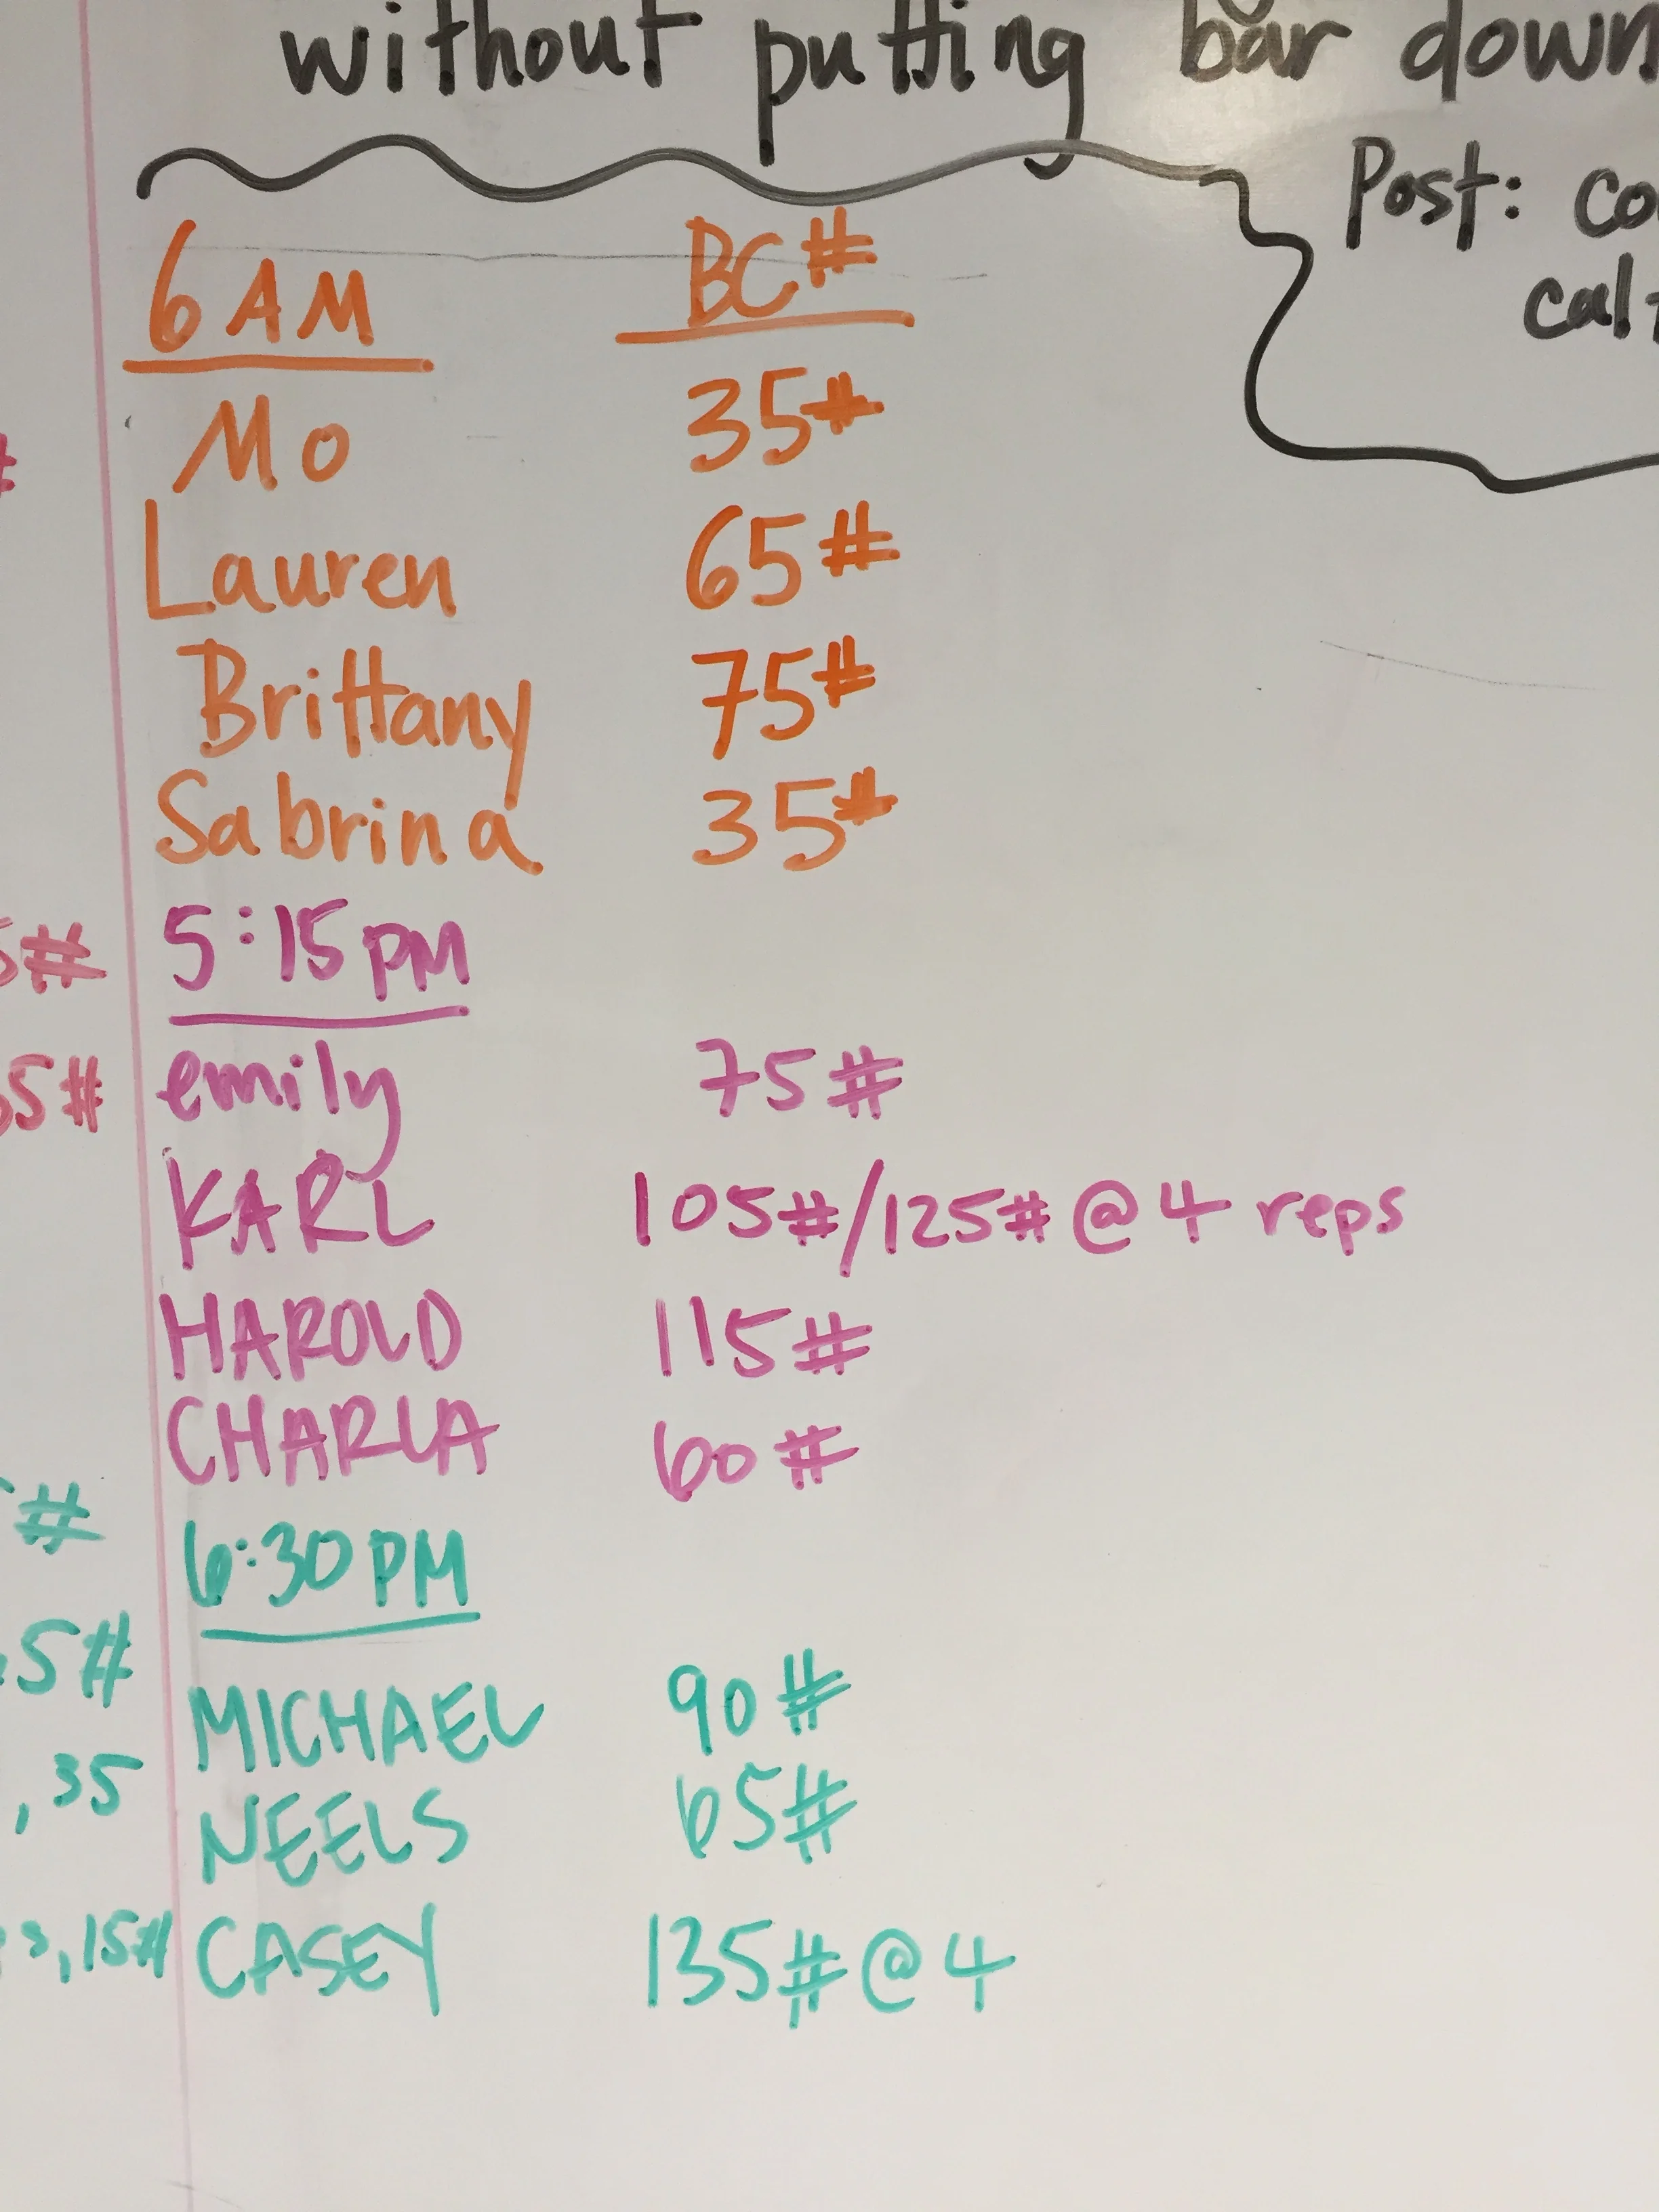 without putting bar down
Post:
6 AM BC#
Mo 35#
Lauren 65#
Brittany 75#
Sabrina 35#
5:15 PM
emily 75#
KARL 105#/125# @ 4 reps
HAROLD 115#
CHARLA 60#
6:30 PM
MICHAEL 90#
NEELS 65#
, 35
CASEY 135# @ 4
, 15#